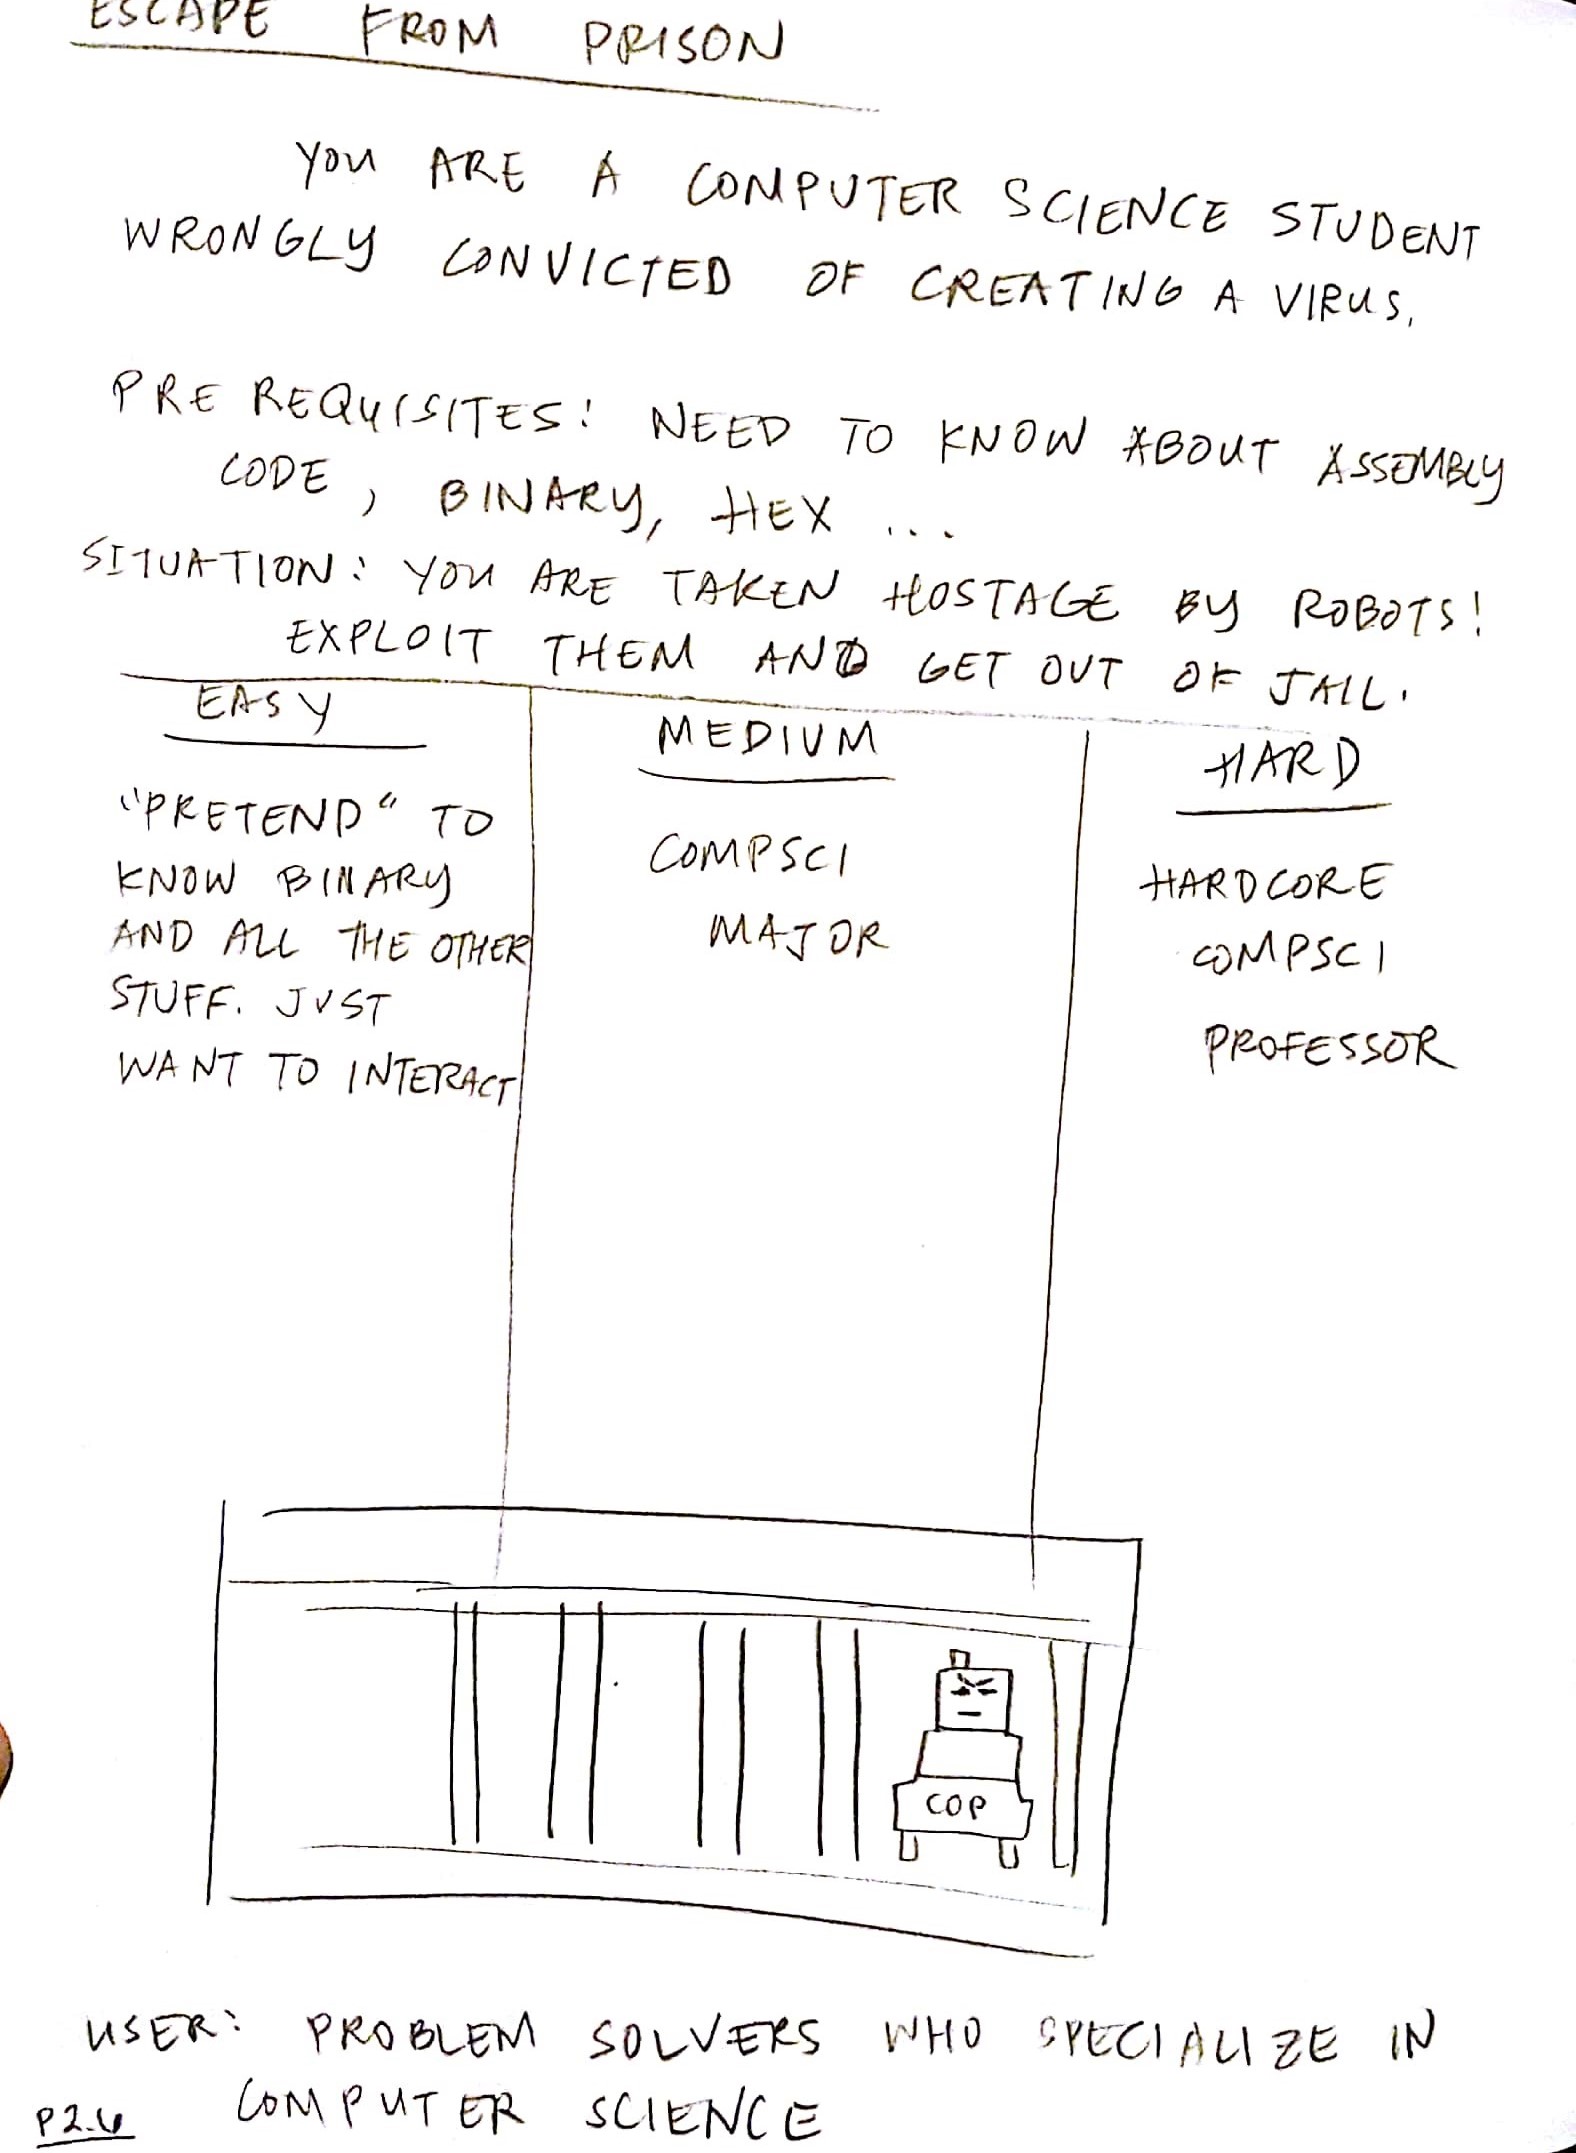 ESCAPE FROM PRISON
YOU ARE A COMPUTER SCIENCE STUDENT
WRONGLY CONVICTED OF CREATING A VIRUS.
PRE REQUISITES: NEED TO KNOW ABOUT ASSEMBLY
CODE, BINARY, HEX ...
SITUATION: YOU ARE TAKEN HOSTAGE BY ROBOTS!
EXPLOIT THEM AND GET OUT OF JAIL.
EASY
"PRETEND" TO
KNOW BINARY
AND ALL THE OTHER
STUFF. JUST
WANT TO INTERACT
MEDIUM
COMPSCI
MAJOR
HARD
HARDCORE
COMPSCI
PROFESSOR
COP
USER: PROBLEM SOLVERS WHO SPECIALIZE IN
COMPUTER SCIENCE